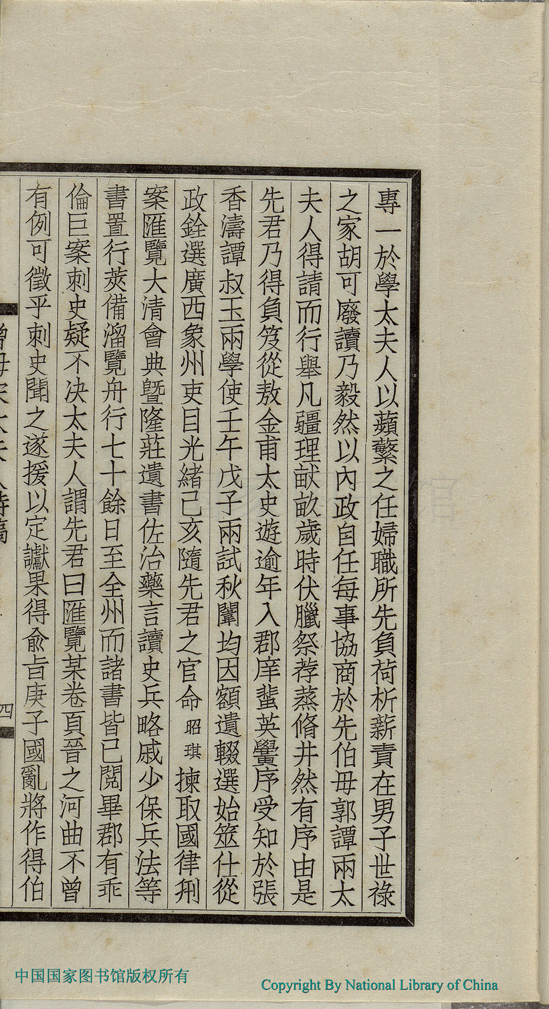 專一於學太夫人以蘋蘩之任婦職所先負荷析薪責在男子世祿
之家胡可廢讀乃毅然以內政自任每事協商於先伯母郭譚兩太
夫人得請而行舉凡疆理献畝歲時伏臘祭荐蒸脩井然有序由是
先君乃得負笈從敖金甫太史遊逾年入郡庠蜚英黌序受知於張
香濤譚叔玉兩學使壬午戊子兩試秋闈均因額遺輟選始筮仕從
政銓選廣西象州吏目光緒己亥隨先君之官命昭琪揀取國律刑
案匯覽大清會典曁隆莊遺書佐治藥言讀史兵略戚少保兵法等
書置行莢備溜覽舟行七十餘日至全州而諸書皆已閱畢郡有乖
倫巨案刺史疑不决太夫人謂先君曰匯覽某卷頁晉之河曲不曾
有例可徵乎刺史聞之遂援以定讞果得兪旨庚子國亂將作得伯
四
中国国家图书馆版权所有
Copyright By National Library of China